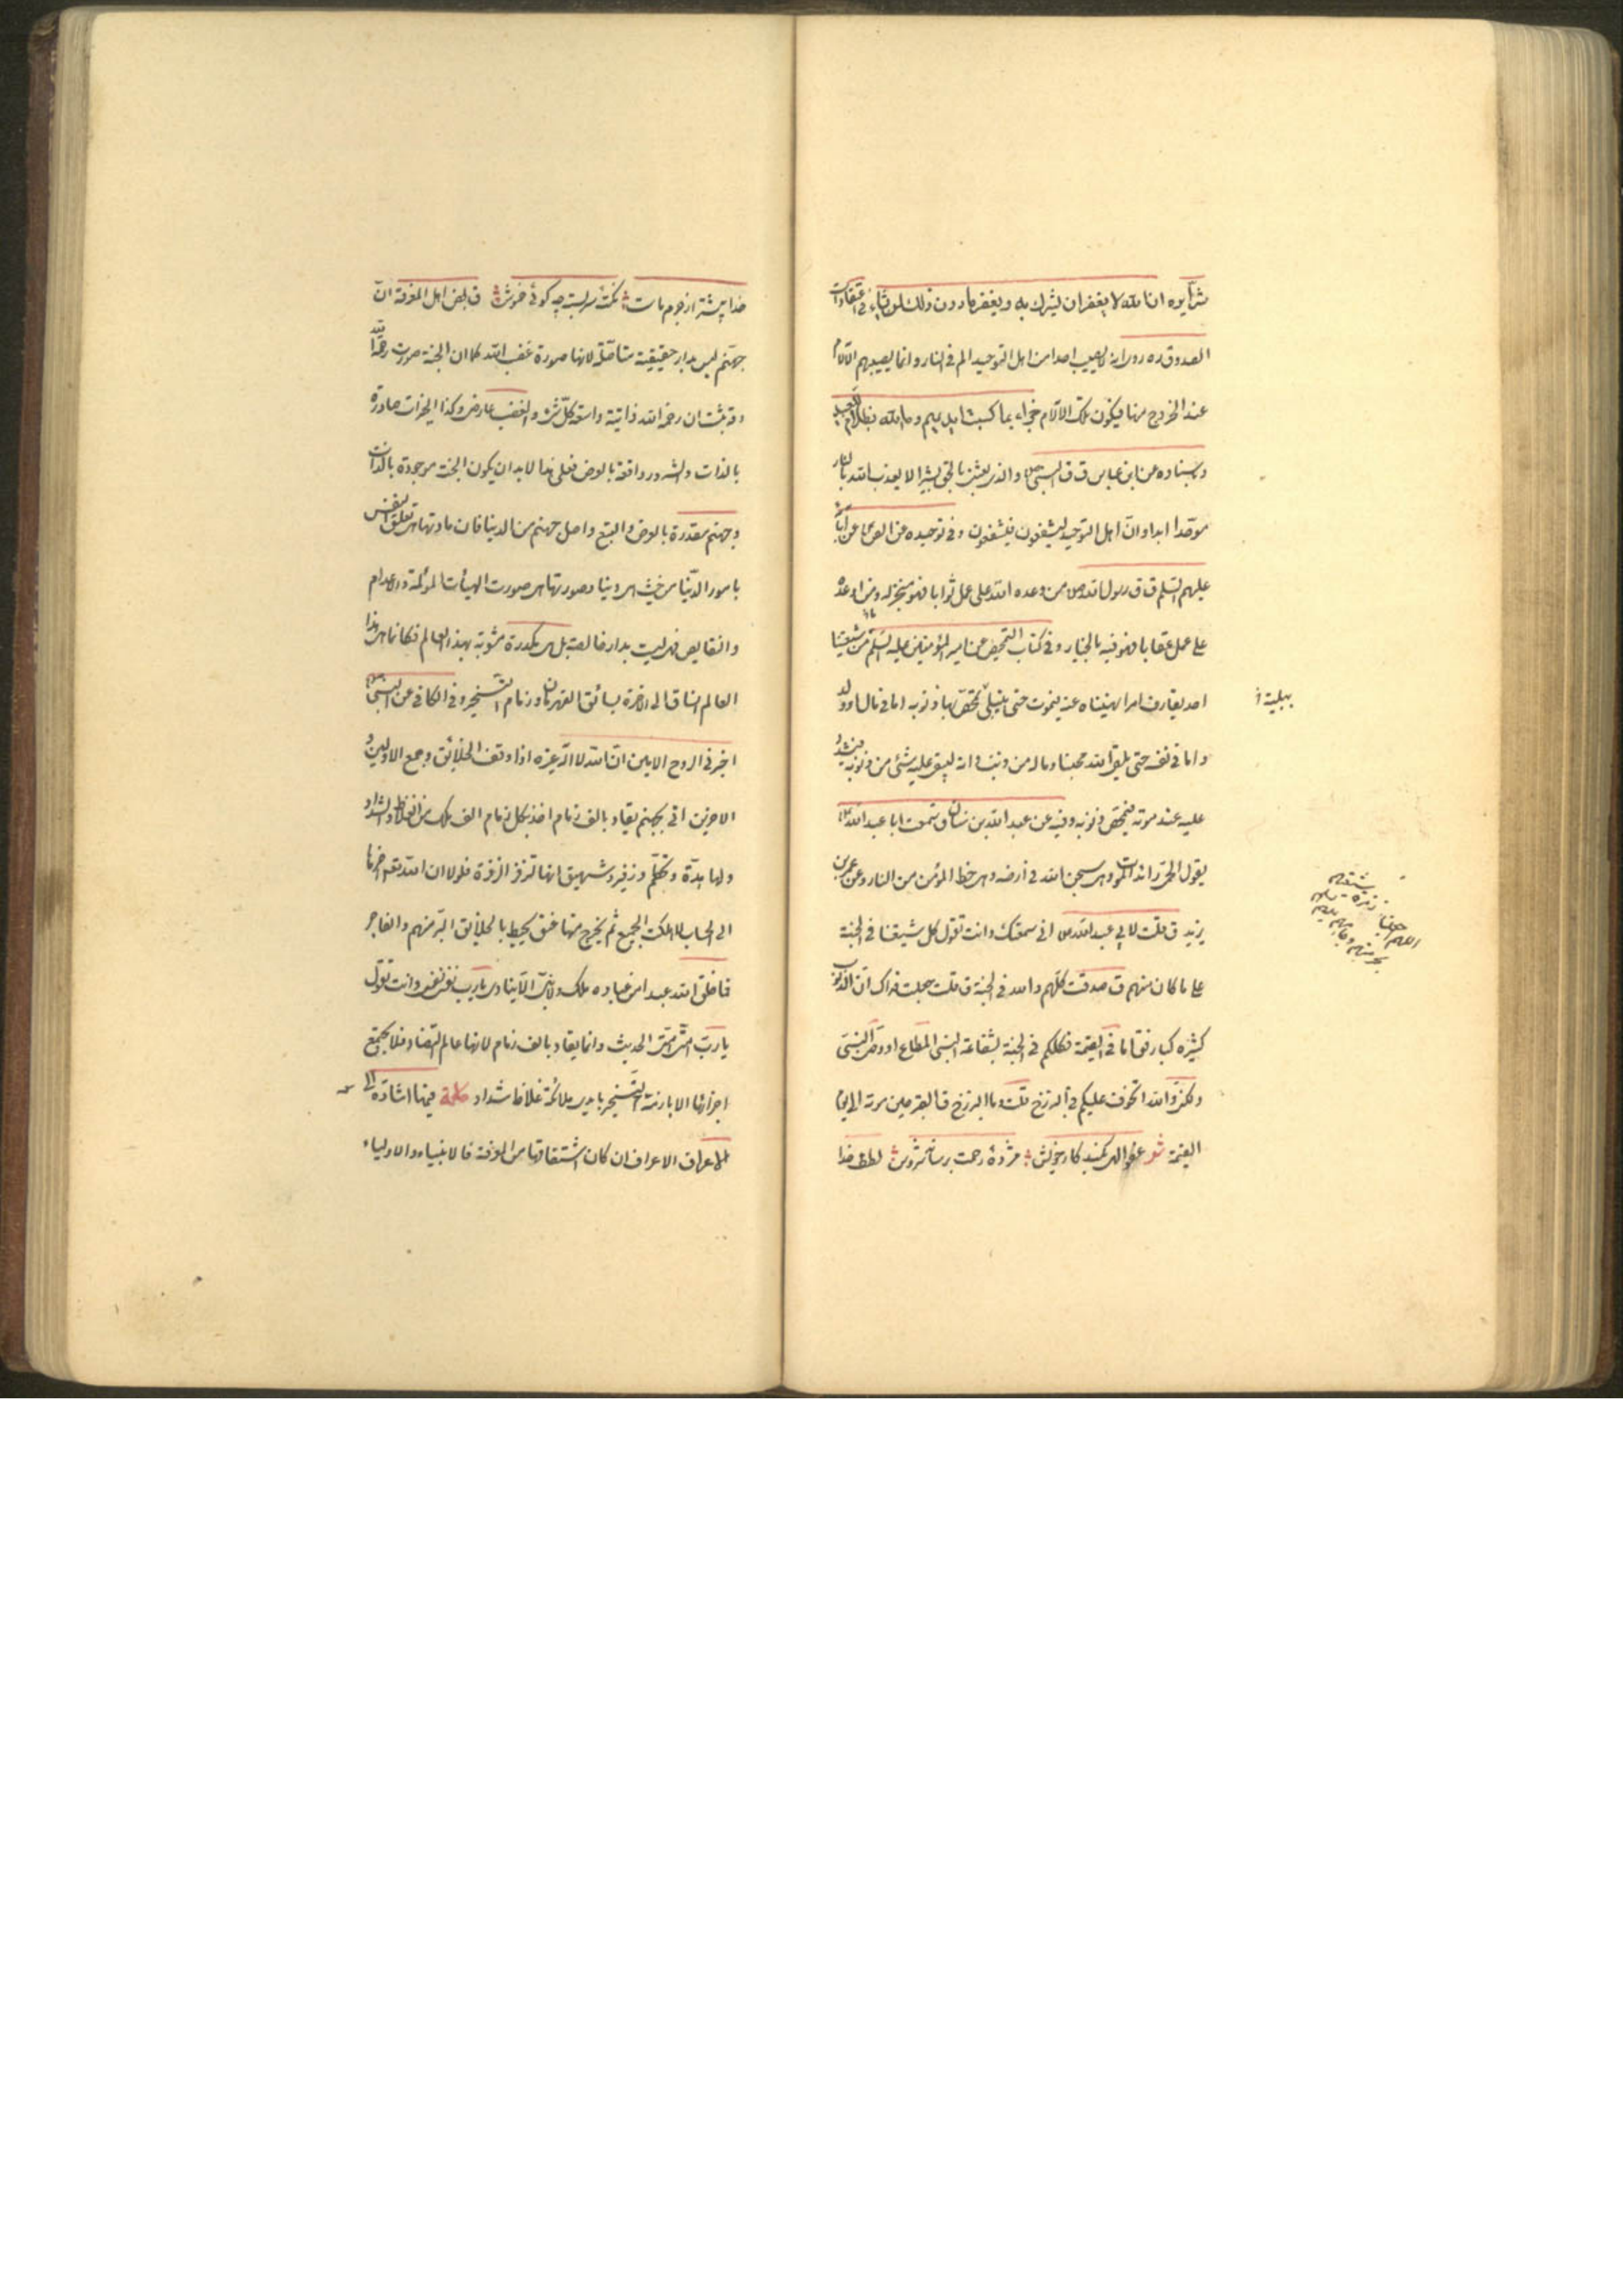 شرائره ان الله لا يغفر ان يشرك به ويغفر ما دون ذلك لمن يشاء في اعتقادات
الصدوق ره روى انه لا يصيب احدا من اهل التوحيد الم في النار وانما يصيبهم الآلام
عند الخروج منها فيكون تلك الآلام جزاء بما كسبت ايديهم وما الله بظلام للعبيد
وباسناده عن ابن عباس ق ق النبي ص والذي بعثني بالحق بشيرا لا يعذب الله بالنار
موحدا ابدا وان اهل التوحيد ليشفعون فيشفعون وفي توحيده عن الص عن آبائه
عليهم السلم ق ق رسول الله ص من وعده الله على عمل ثوابا فهو منجزله ومن اوعده
على عمل عقابا فهو فيه بالخيار وفي كتاب التمحيص عن امير المؤمنين عليه السلم ما من شيعتنا
احد يقارف امرا نهيناه عنه فيموت حتى يبتلى تمحص بها ذنوبه اما في مال او ولد
واما في نفسه حتى يلقى الله محبنا وما له من ذنب وانه ليبقى عليه شئ من ذنوبه فيشدد
عليه عند موته فيمحص ذنوبه وفيه عن عبد الله بن سنان ق سمعت ابا عبد الله ع
يقول الحمى رائد الموت وهي سجن الله في ارضه وهي حظ المؤمن من النار وعن عمر بن
يزيد ق قلت لابي عبد الله ص اني سمعتك وانت تقول كل شيعتنا في الجنة
على ما كان منهم ق صدقت كلهم والله في الجنة ق قلت جعلت فداك ان الذنوب
كثيره كبار فق اما في القيمة فكلكم في الجنة بشفاعة النبي المطاع او وصي النبي
ولكني والله اتخوف عليكم في البرزخ قلت وما البرزخ ق القبر حين موته الى يوم
القيمة شعر عفو الهى بكند كار خويش مژدهٔ رحمت برساند سروش لطف خدا
ببلية
خدا بيشتر از جرم ماست نكتهٔ سربسته چه كوئى خموش ق بعض اهل المعرفة ان
جهنم ليس بدار حقيقية متأصلة لانها صورة غضب الله كما ان الجنة صورت رحمة الله
وقد ثبت ان رحمة الله ذاتية واسعة كل شئ والغضب عارض وكذا الخيرات صادرة
بالذات والشرور واقعة بالعرض فعلى هذا لا بد ان يكون الجنة موجودة بالذات
وجهنم مقدرة بالعرض والتبع واصل جهنم من الدنيا فان مادتها هي تعلق النفس
بامور الدنيا من حيث هي دنيا وصورتها هي صورت الهيأت المؤلمة والاعدام
والنقايص فهي ليست بدار خالصة بل هي مكدرة مشوبة بهذا العالم فكانها هي هذا
العالم انساق الى الاخرة بسائق القهر وزمام التسخير وفي الكافي عن النبي ص
اخبرني الروح الامين ان الله لا اله غيره اذا وقف الخلائق وجمع الاولين و
الاخرين اتى بجهنم يقاد بالف زمام اخذ بكل زمام الف ملك من الغلاظ الشداد
ولها هدة وتحطم وزفير وشهيق انها لتزفر الزفرة فلولا ان الله يؤخرها
الى الحساب لاهلكت الجميع ثم يخرج منها عنق يحيط بالخلائق البر منهم والفاجر
فما خلق الله عبدا من عباده ملك ولا نبي الا ينادى يا رب نفسي نفسي وانت تقول
يا رب امتي امتي الحديث وانما يقاد بالف زمام لانها عالم التضاد فلا يجتمع
اجزائها الا بازمة التسخير بايدى ملائكة غلاظ شداد كلمة فيها اشارة الى
الاعراف الاعراف ان كان اشتقاقها من المعرفة فالانبياء والاولياء